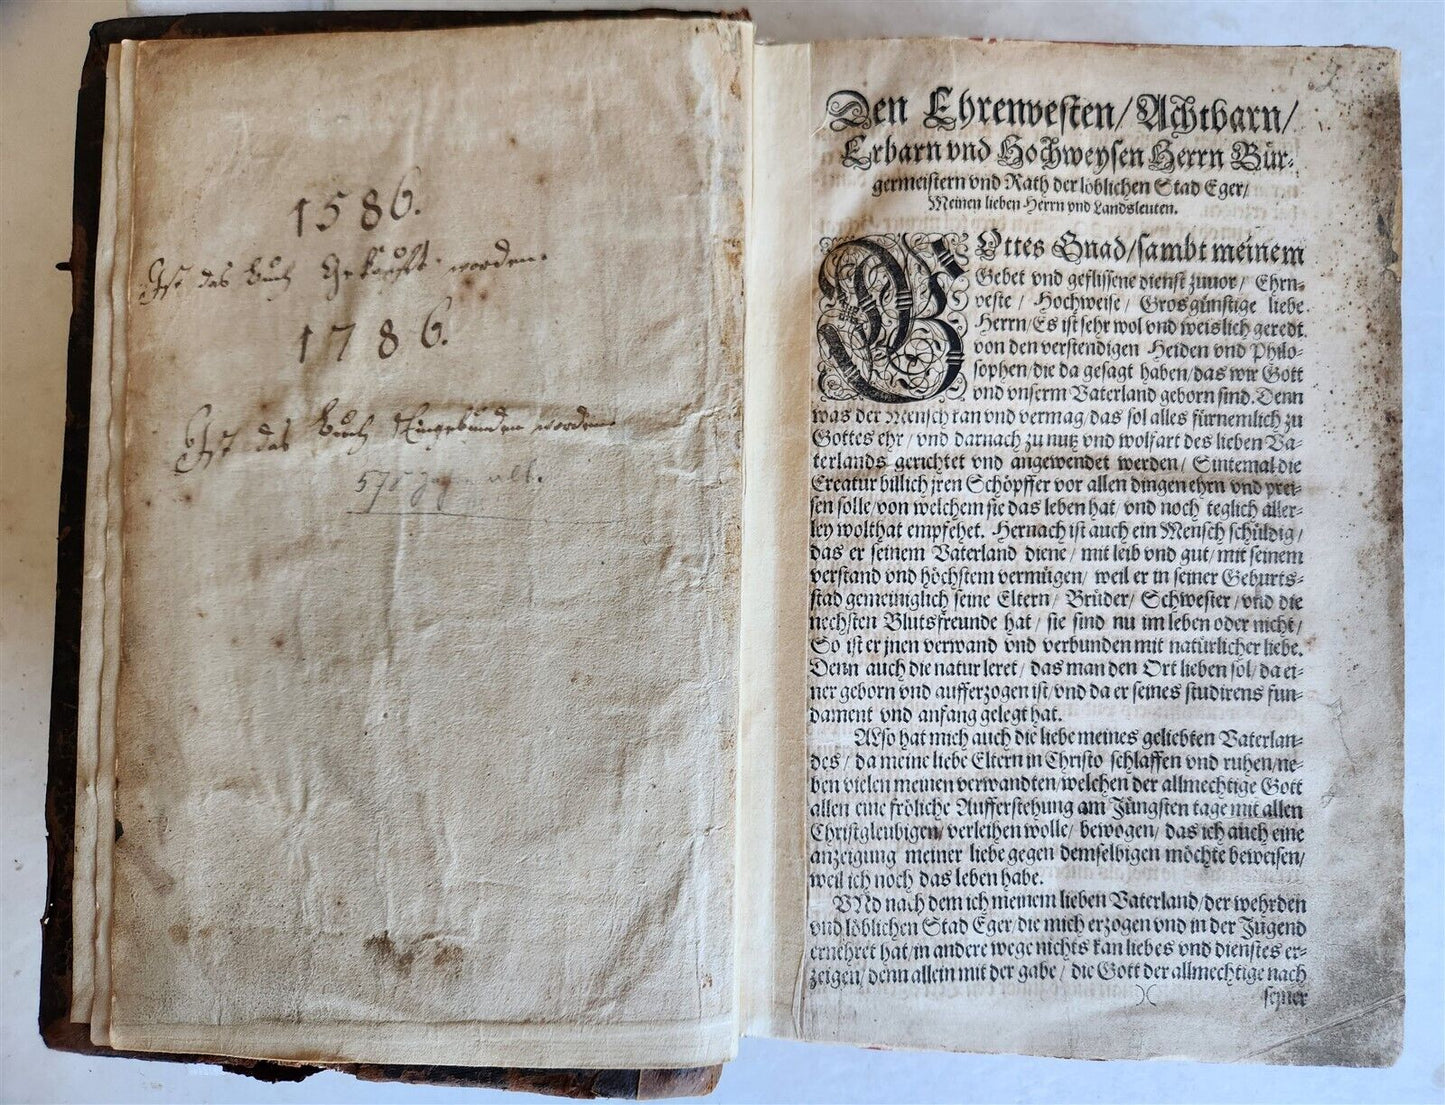 1586.
Ist das buch Gekaufft worden.
1786.
Ist das buch Eingebunden worden
alt.
Den Ehrenvesten/ Achtbarn/
Erbarn vnd Hochweysen Herrn Bür-
germeistern vnd Rath der löblichen Stad Eger/
Meinen lieben Herrn vnd Landsleuten.
GOttes Gnad/ sambt meinem
Gebet vnd geflissene dienst zuuor/ Ehrn-
veste/ Hochweise/ Grosgünstige liebe
Herrn/ Es ist sehr wol vnd weislich geredt
von den verstendigen Heiden vnd Philo-
sophen/ die da gesagt haben/ das wir Gott
vnd vnserm Vaterland geborn sind. Denn
was der Mensch kan vnd vermag/ das sol alles fürnemlich zu
Gottes ehr/ vnd darnach zu nutz vnd wolfart des lieben Va-
terlands gerichtet vnd angewendet werden/ Sintemal die
Creatur billich jren Schöpffer vor allen dingen ehrn vnd prei-
sen solle/ von welchem sie das leben hat/ vnd noch teglich aller-
ley wolthat empfehet. Hernach ist auch ein Mensch schüldig/
das er seinem Vaterland diene/ mit leib vnd gut/ mit seinem
verstand vnd höchstem vermügen/ weil er in seiner Geburts-
stad gemeiniglich seine Eltern/ Brüder/ Schwester/ vnd die
nechsten Blutsfreunde hat/ sie sind nu im leben oder nicht/
So ist er jnen verwand vnd verbunden mit natürlicher liebe.
Denn auch die natur leret/ das man den Ort lieben sol/ da ei-
ner geborn vnd aufferzogen ist/ vnd da er seines studirens fun-
dament vnd anfang gelegt hat.
Also hat mich auch die liebe meines geliebten Vaterlan-
des/ da meine liebe Eltern in Christo schlaffen vnd ruhen/ ne-
ben vielen meinen verwandten/ welchen der allmechtige Gott
allen eine fröliche Aufferstehung am Jüngsten tage mit allen
Christgleubigen/ verleihen wolle/ bewogen/ das ich auch eine
anzeigung meiner liebe gegen demselbigen möchte beweisen/
weil ich noch das leben habe.
VNd nach dem ich meinem lieben Vaterland/ der wehrden
vnd löblichen Stad Eger/ die mich erzogen vnd in der Jugend
ernehret hat/ in andere wege nichts kan liebes vnd dienstes er-
zeigen/ denn allein mit der gabe/ die Gott der allmechtige nach
)( seiner